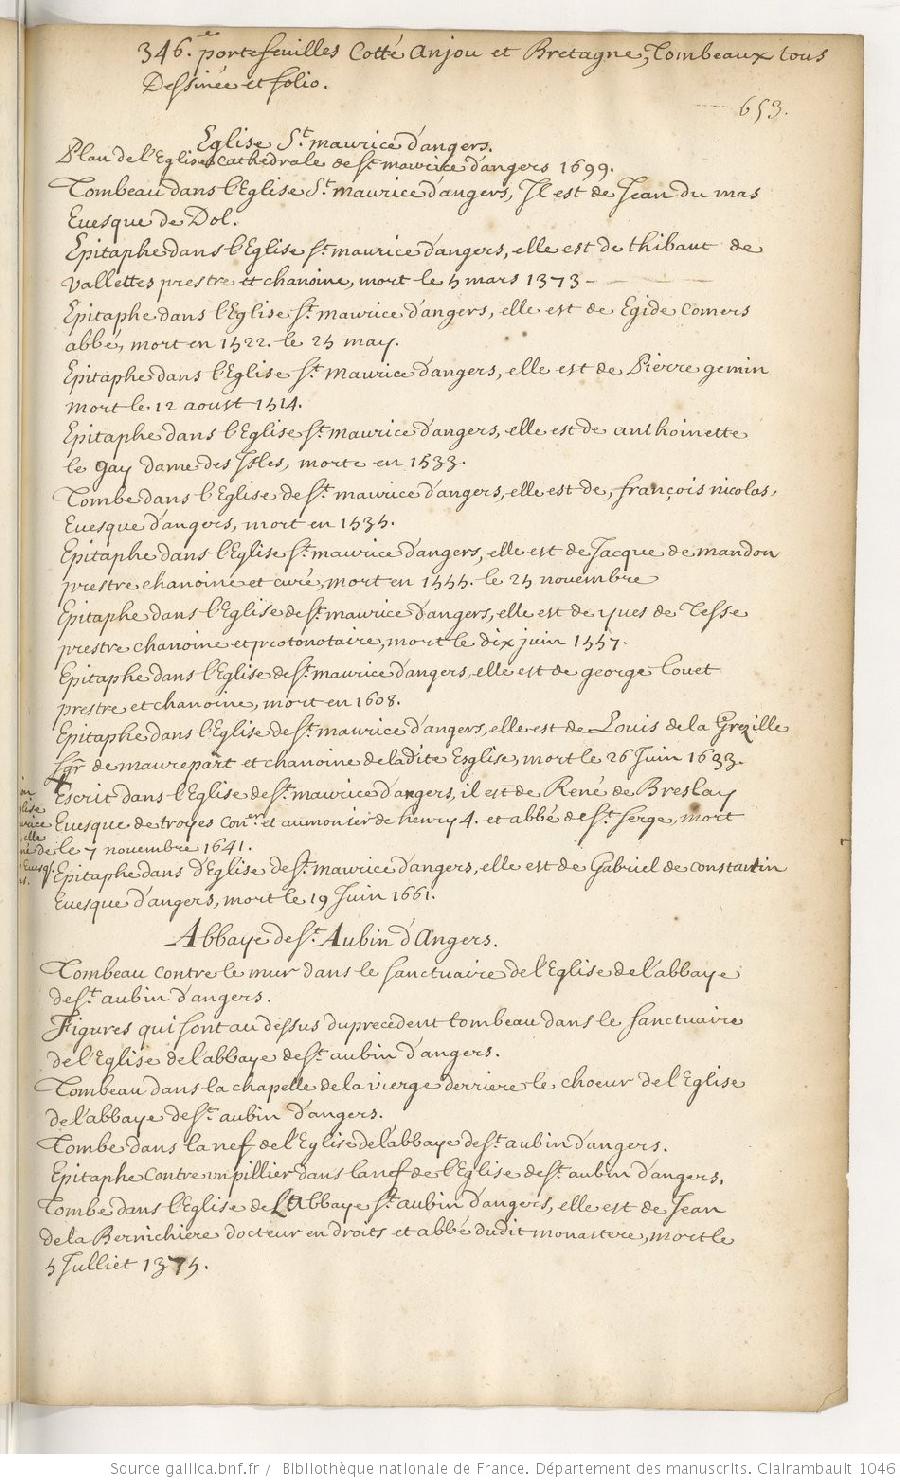 346.e portefeuilles Cotté Anjou et Bretagne, Tombeaux tous
Dessinée et folio.
653.
Eglise St. maurice d'angers.
Plan de l'Eglise Cathedrale de St. maurice d'angers 1699.
Tombeau dans l'Eglise St. maurice d'angers, Il est de Jean du mas
Euesque de Dol.
Epitaphe dans l'Eglise St. maurice d'angers, elle est de thibaut de
Vallettes prestre et chanoine, mort le 5 mars 1373 -
Epitaphe dans l'Eglise St. maurice d'angers, elle est de Egide Comers
abbé, mort en 1522. le 25 may.
Epitaphe dans l'Eglise St. maurice d'angers, elle est de Pierre gemin
mort le 12 aoust 1514.
Epitaphe dans l'Eglise St. maurice d'angers, elle est de anthoinette
le gay Dame des Isles, morte en 1533.
Tombe dans l'Eglise de St. maurice d'angers, elle est de, françois nicolas,
Euesque d'angers, mort en 1535.
Epitaphe dans l'Eglise St. maurice d'angers, elle est de Jacque de mandon
prestre chanoine et curé, mort en 1555. le 25 novembre
Epitaphe dans l'Eglise de St. maurice d'angers, elle est de yues de Tesse
prestre chanoine et protonotaire, mort le dix juin 1557.
Epitaphe dans l'Eglise de St. maurice d'angers, elle est de george Louet
prestre et chanoine, mort en 1608.
Epitaphe dans l'Eglise de St. maurice d'angers, elle est de Louis de la Grezille
Sgr de maurepart et chanoine de la dite Esglise, mort le 26 Juin 1633.
Escrit dans l'Eglise de St. maurice d'angers, il est de René de Breslay
Euesque de troyes Coner. et aumonier de henry 4. et abbé de St. serge, mort
le 7 novembre 1641.
Epitaphe dans l'Eglise de St. maurice d'angers, elle est de Gabriel de constantin
Euesque d'angers, mort le 19 Juin 1661.
Abbaye de St. Aubin d'Angers.
Tombeau contre le mur dans le sanctuaire de l'Eglise de l'abbaye
de St. aubin d'angers.
Figures qui sont au dessus du precedent tombeau dans le sanctuaire
de l'Eglise de l'abbaye de St. aubin d'angers.
Tombeau dans la chapelle de la vierge derriere le choeur de l'Eglise
de l'abbaye de St. aubin d'angers.
Tombe dans la nef de l'Eglise de l'abbaye de St. aubin d'angers.
Epitaphe Contre un pillier dans la nef de l'Eglise de St. aubin d'angers.
Tombe dans l'Eglise de L'Abbaye St. aubin d'angers, elle est de Jean
de la Bernichiere docteur en droits et abbé dudit monastere, mort le
5 Julliet 1375.
Source gallica.bnf.fr / Bibliothèque nationale de France. Département des manuscrits. Clairambault 1046